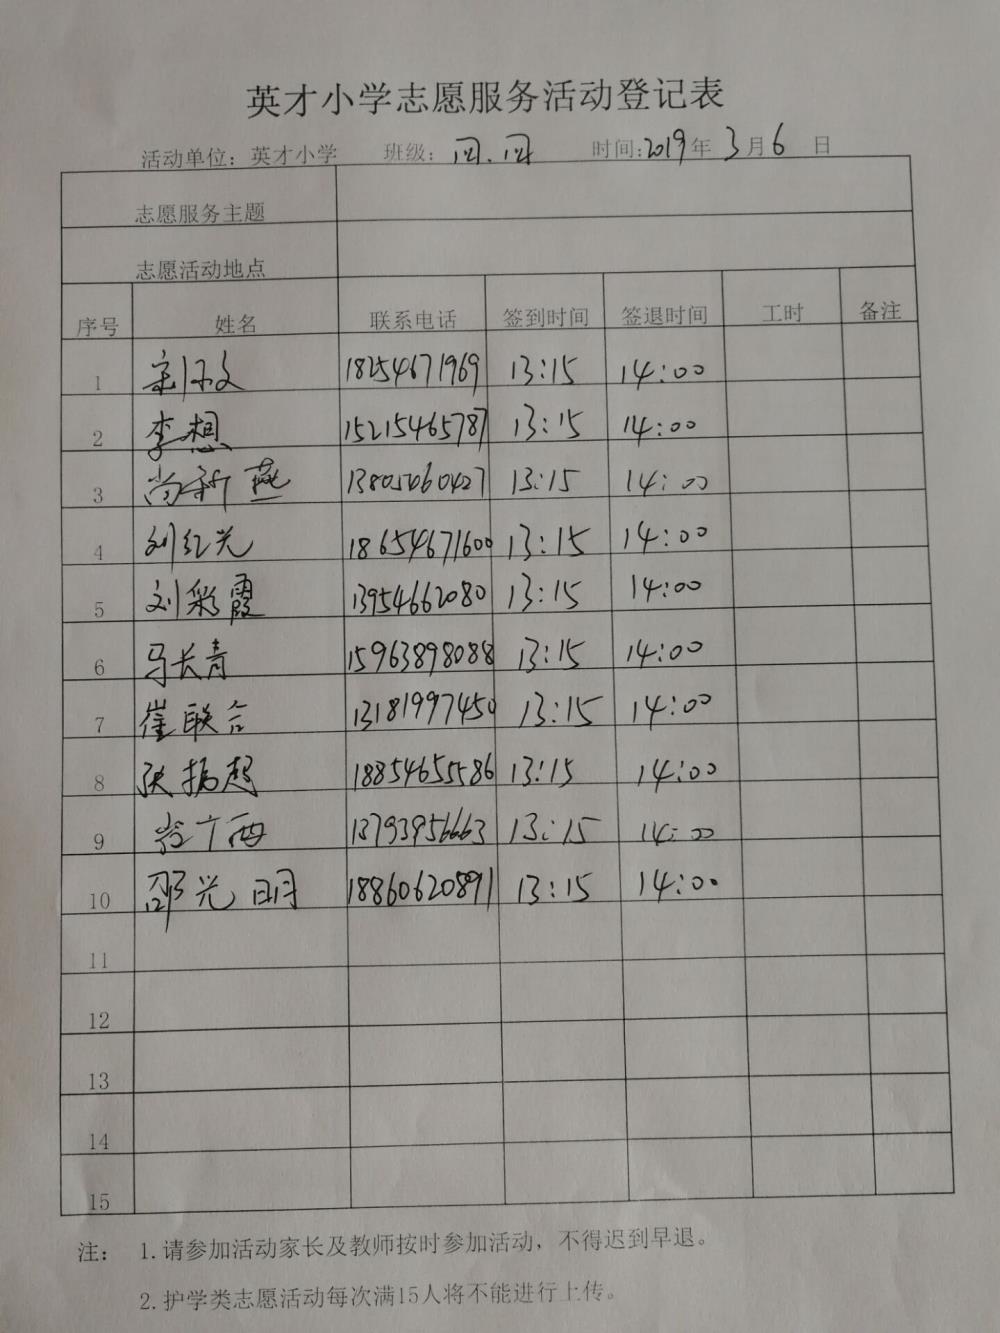 英才小学志愿服务活动登记表
活动单位：英才小学 班级：四.四 时间:2019年3月6日
志愿服务主题
志愿活动地点
序号 姓名 联系电话 签到时间 签退时间 工时 备注
1 18254671969 13:15 14:00
2 李想 15215465787 13:15 14:00
3 尚新燕 13805460427 13:15 14:00
4 刘红光 18654671600 13:15 14:00
5 刘彩霞 13954662080 13:15 14:00
6 马长青 15963898088 13:15 14:00
7 崔联合 13181997450 13:15 14:00
8 张振超 18854655586 13:15 14:00
9 13793956663 13:15 14:00
10 邵光明 18860620891 13:15 14:00
11
12
13
14
15
注： 1.请参加活动家长及教师按时参加活动，不得迟到早退。
2.护学类志愿活动每次满15人将不能进行上传。